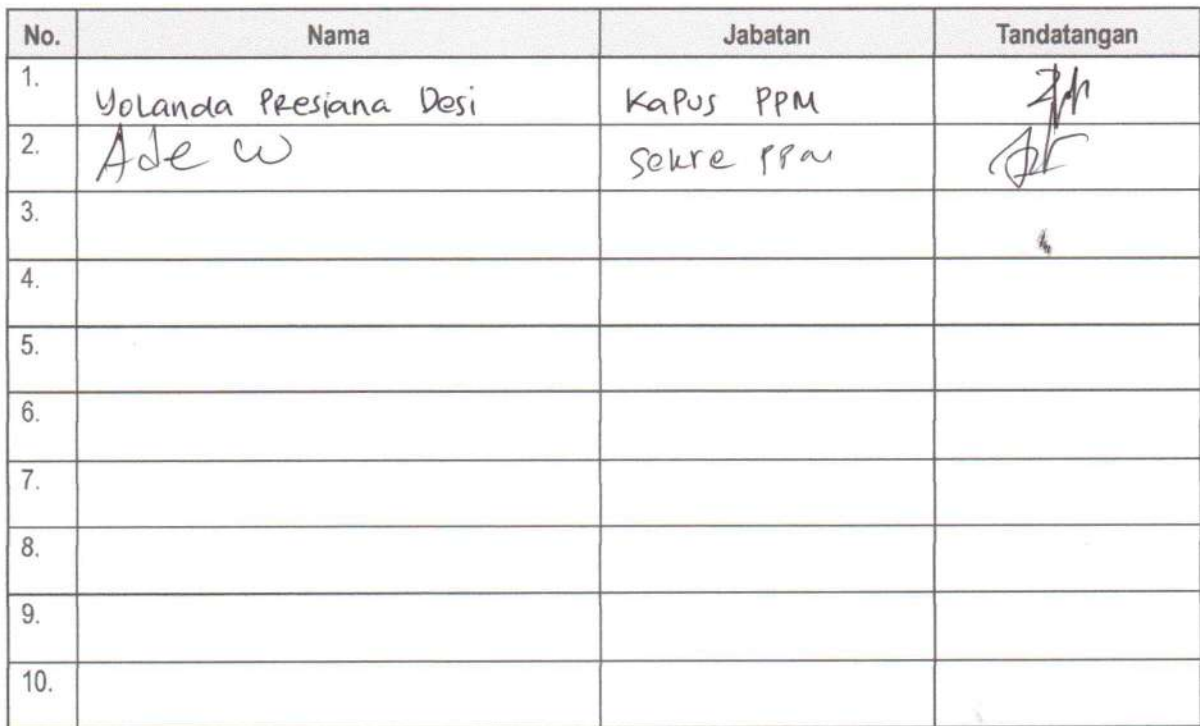 No. Nama Jabatan Tandatangan
1. Yolanda Presiana Desi Kapus PPM
2. Ade W Sekre PPM
3.
4.
5.
6.
7.
8.
9.
10.